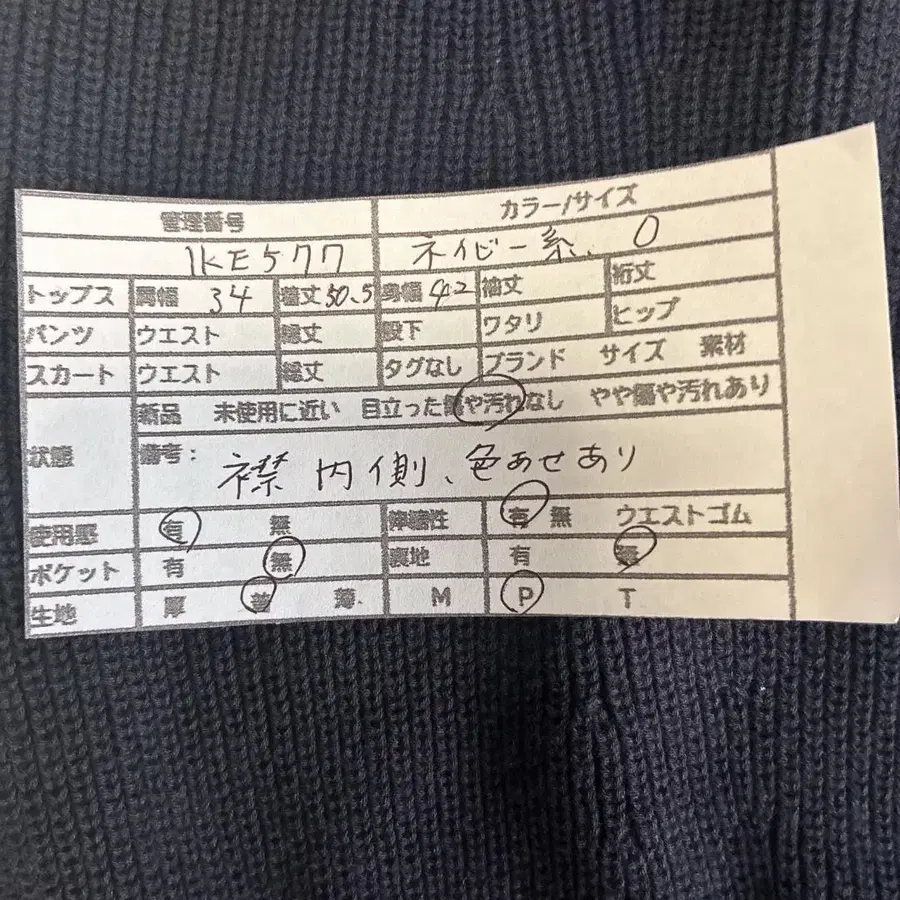 管理番号 カラー/サイズ
IKE577 ネイビー系、0
トップス 肩幅 34 着丈 50.5 身幅 42 袖丈 裄丈
パンツ ウエスト 総丈 股下 ワタリ ヒップ
スカート ウエスト 総丈 タグなし ブランド サイズ 素材
状態 新品 未使用に近い 目立った傷や汚れなし やや傷や汚れあり
備考: 襟内側、色あせあり
使用感 有 無 伸縮性 有 無 ウエストゴム
ポケット 有 無 裏地 有 無
生地 厚 普 薄 M P T